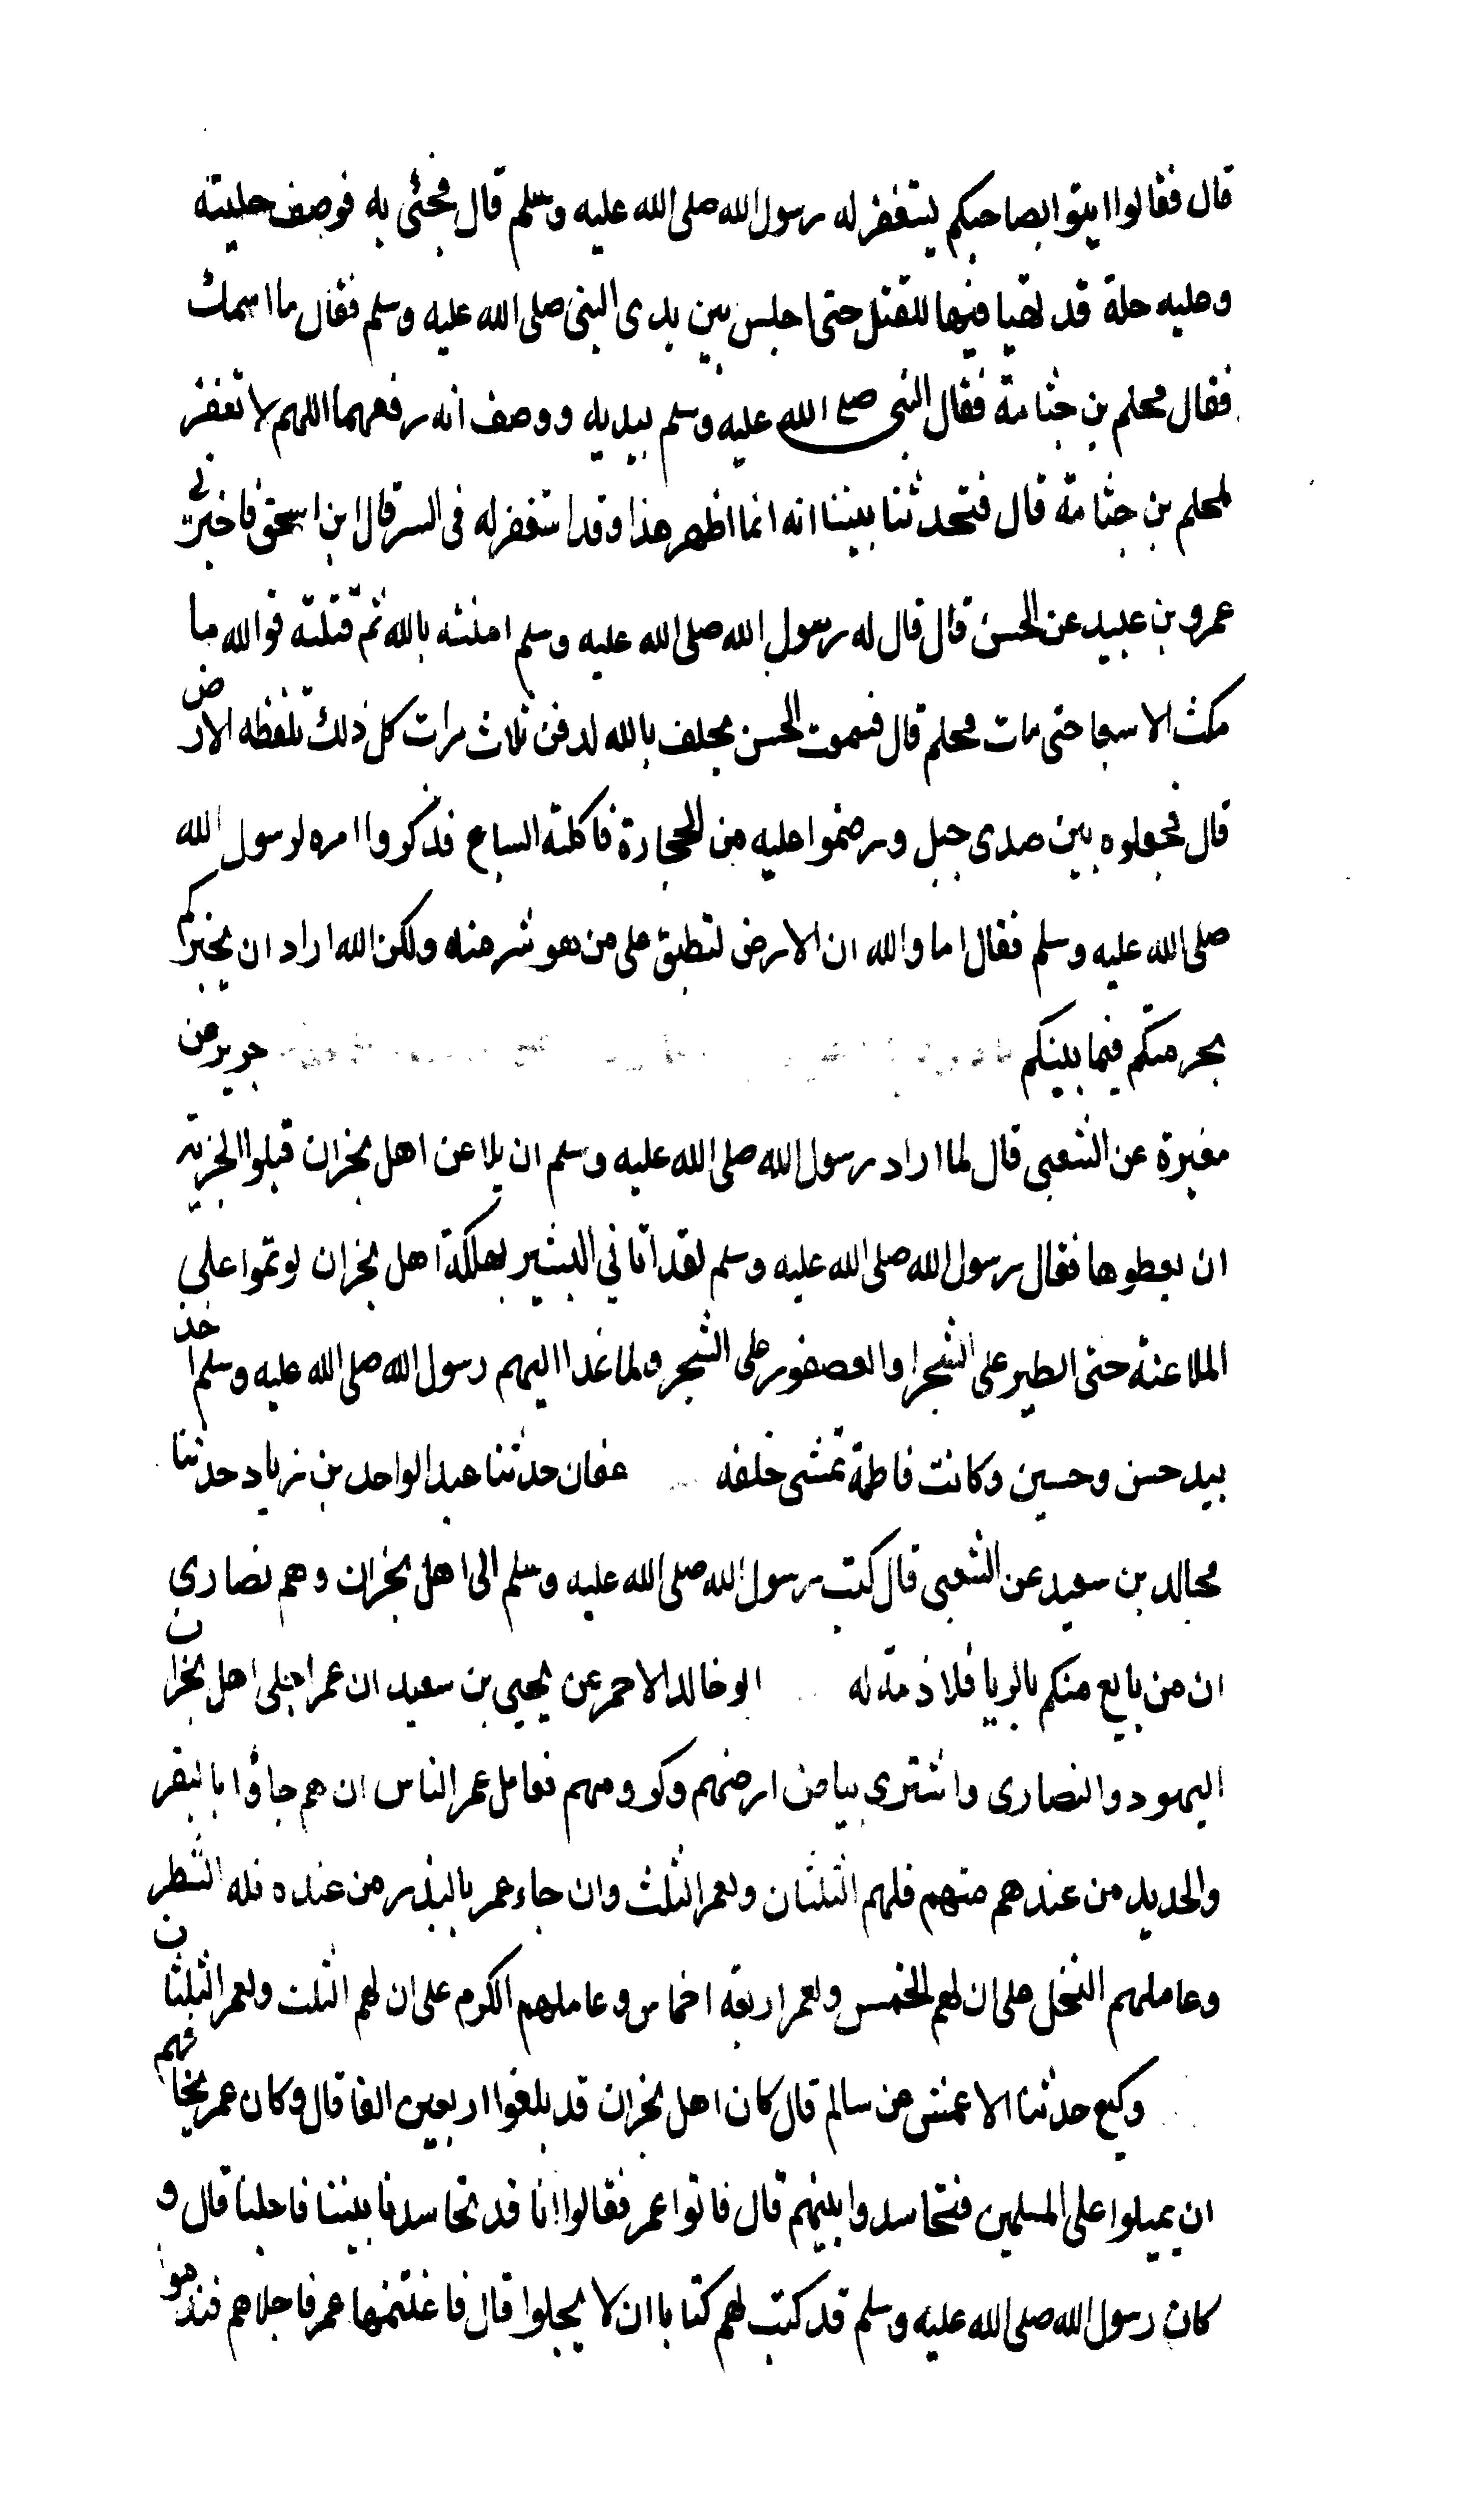 قال فقالوا ايتوا بصاحبكم يستغفر له رسول الله صلى الله عليه وسلم قال فجئى به فوصف حليته
وعليه حلة قد تهيا فيها للقتل حتى اجلس بين يدى النبى صلى الله عليه وسلم فقال ما اسمك
فقال محلم بن جثامة فقال النبى صلى الله عليه وسلم بيديه ووصف انه رفعهما اللهم لا تغفر
لمحلم بن جثامة قال فتحدثنا بيننا انه انما اظهر هذا وقد استغفر له فى السر قال ابن اسحق فاخبرنى
عمرو بن عبيد عن الحسن قال قال له رسول الله صلى الله عليه وسلم امنته بالله ثم قتلته فوالله ما
مكث الا سبعا حتى مات محلم قال فسمعت الحسن يحلف بالله لدفن ثلاث مرات كل ذلك تلفظه الارض
قال فجعلوه بين صدى جبل ورضموا عليه من الحجارة فاكلته السباع فذكروا امره لرسول الله
صلى الله عليه وسلم فقال اما والله ان الارض لتطبق على من هو شر منه ولكن الله اراد ان يخبركم
بحرمتكم فيما بينكم جرير عن
مغيرة عن الشعبى قال لما اراد رسول الله صلى الله عليه وسلم ان يلاعن اهل نجران قبلوا الجزية
ان يعطوها فقال رسول الله صلى الله عليه وسلم لقد اتاني البشير بهلكة اهل نجران لو تموا على
الملاعنة حتى الطير على الشجر او العصفور على الشجر ولما غدا اليهم رسول الله صلى الله عليه وسلم اخذ
بيد حسن وحسين وكانت فاطمة تمشى خلفه عفان حدثنا عبد الواحد بن زياد حدثنا
مجالد بن سعيد عن الشعبى قال كتب رسول الله صلى الله عليه وسلم الى اهل نجران وهم نصارى
ان من بايع منكم بالربا فلا ذمة له ابو خالد الاحمر عن يحيى بن سعيد ان عمر اجلى اهل نجران
اليهود والنصارى واشترى بياض ارضهم وكرومهم فعامل عمر الناس ان هم جاؤا بالبقر
والحديد من عندهم فلهم الثلثان ولعمر الثلث وان جاء عمر بالبذر من عنده فله الشطر
وعاملهم النخل على ان لهم الخمس ولعمر اربعة اخماس وعاملهم الكرم على ان لهم الثلث ولعمر الثلثان
وكيع حدثنا الاعمش عن سالم قال كان اهل نجران قد بلغوا اربعين الفا قال وكان عمر يخافهم
ان يميلوا على المسلمين فتحاسدوا بينهم قال فاتوا عمر فقالوا انا قد تحاسدنا بيننا فاجلنا قال و
كان رسول الله صلى الله عليه وسلم قد كتب لهم كتابا ان لا يجلوا قال فاغتنمها عمر فاجلاهم فندموا